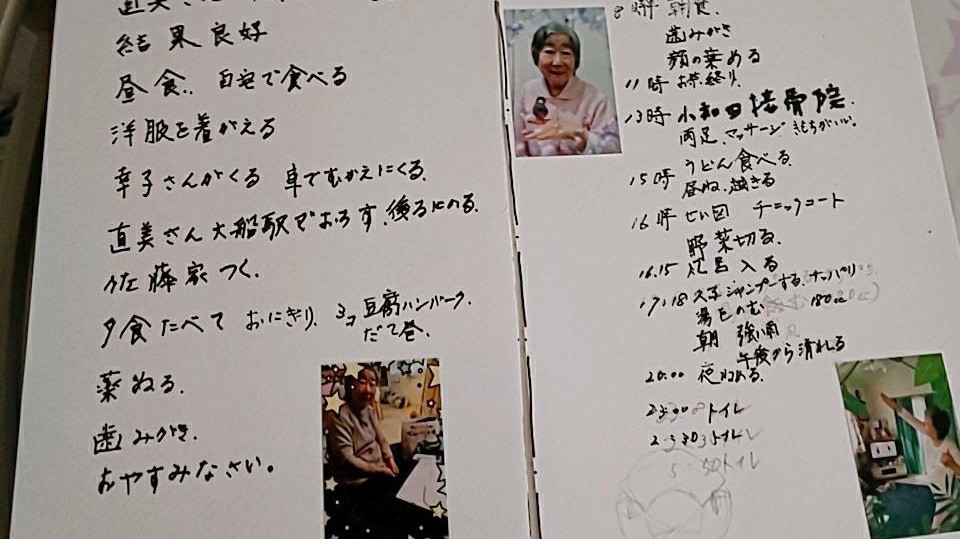 直美さん
結果良好
昼食、自宅で食べる
洋服を着がえる
幸子さんがくる 車でむかえにくる。
直美さん大船駅でおろす。後ろにのる。
佐藤家つく。
夕食たべて おにぎり、 豆腐ハンバーグ、
だて巻。
薬ぬる。
歯みがき。
おやすみなさい。
8時 朝食。
歯みがき
顔の薬める
11時 お茶終り。
13時 小和田接骨院。
両足、マッサージ きもちがいい。
15時 うどん食べる。
昼ね、起きる
16時 せい図 チニックコート
野菜切る。
16.15 風呂入る
17.18 ジャンプーする、
湯をのむ 180cc
朝 強い雨
午後から晴れる
20:00 夜ねる。
23:00 トイレ
23 30 トイレ
5:50トイレ